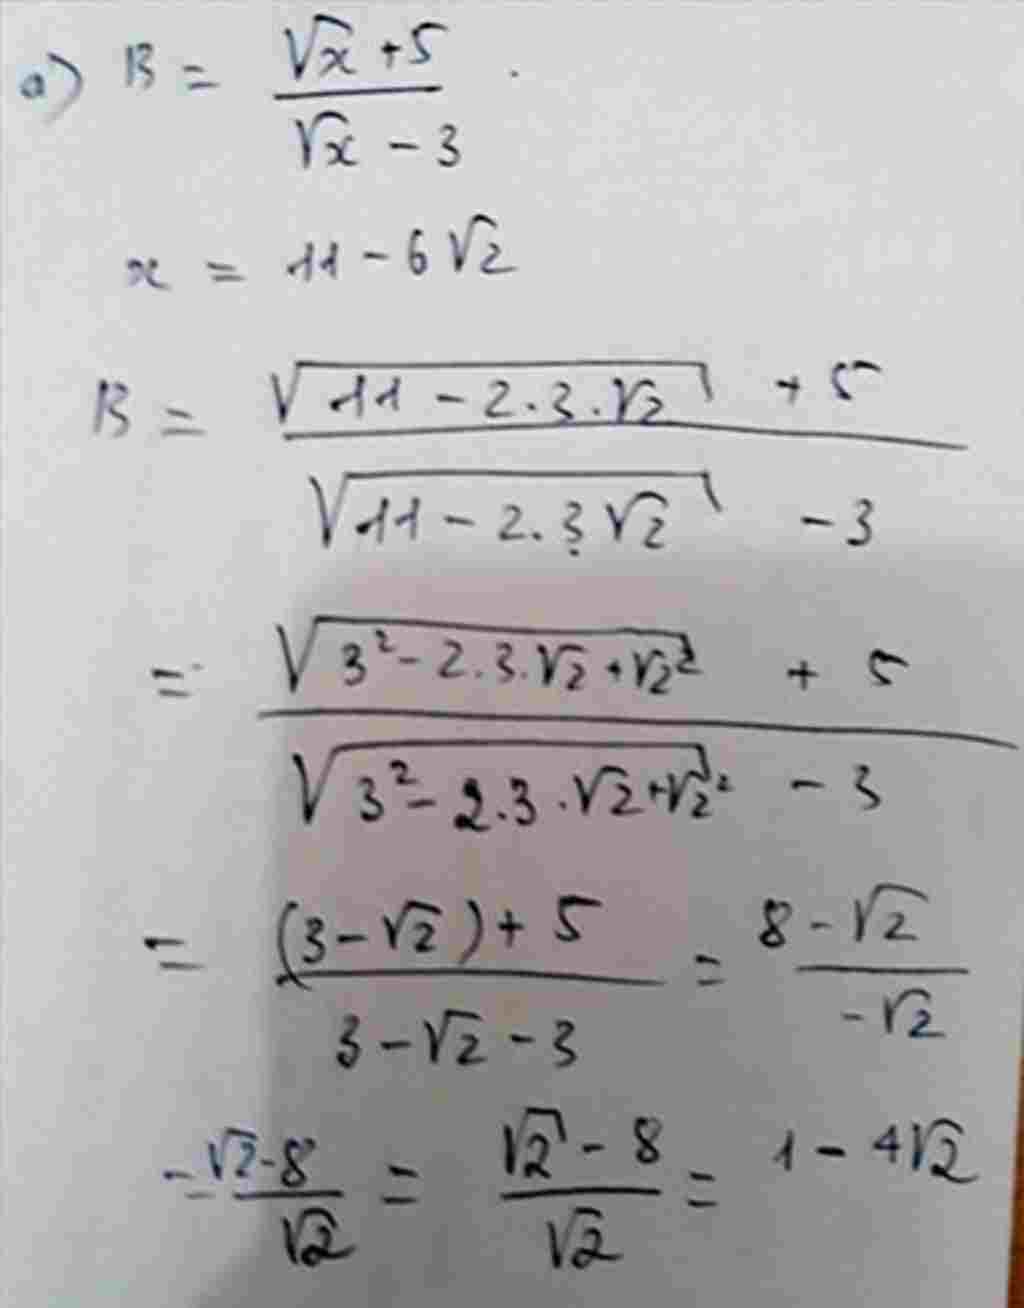 a) B = \frac{\sqrt{x} + 5}{\sqrt{x} - 3}.
x = 11 - 6\sqrt{2}
B = \frac{\sqrt{11 - 2.3.\sqrt{2}} + 5}{\sqrt{11 - 2.3\sqrt{2}} - 3}
= \frac{\sqrt{3^2 - 2.3.\sqrt{2} + \sqrt{2}^2} + 5}{\sqrt{3^2 - 2.3.\sqrt{2} + \sqrt{2}^2} - 3}
= \frac{(3 - \sqrt{2}) + 5}{3 - \sqrt{2} - 3} = \frac{8 - \sqrt{2}}{-\sqrt{2}}
= \frac{\sqrt{2} - 8}{\sqrt{2}} = \frac{\sqrt{2} - 8}{\sqrt{2}} = 1 - 4\sqrt{2}